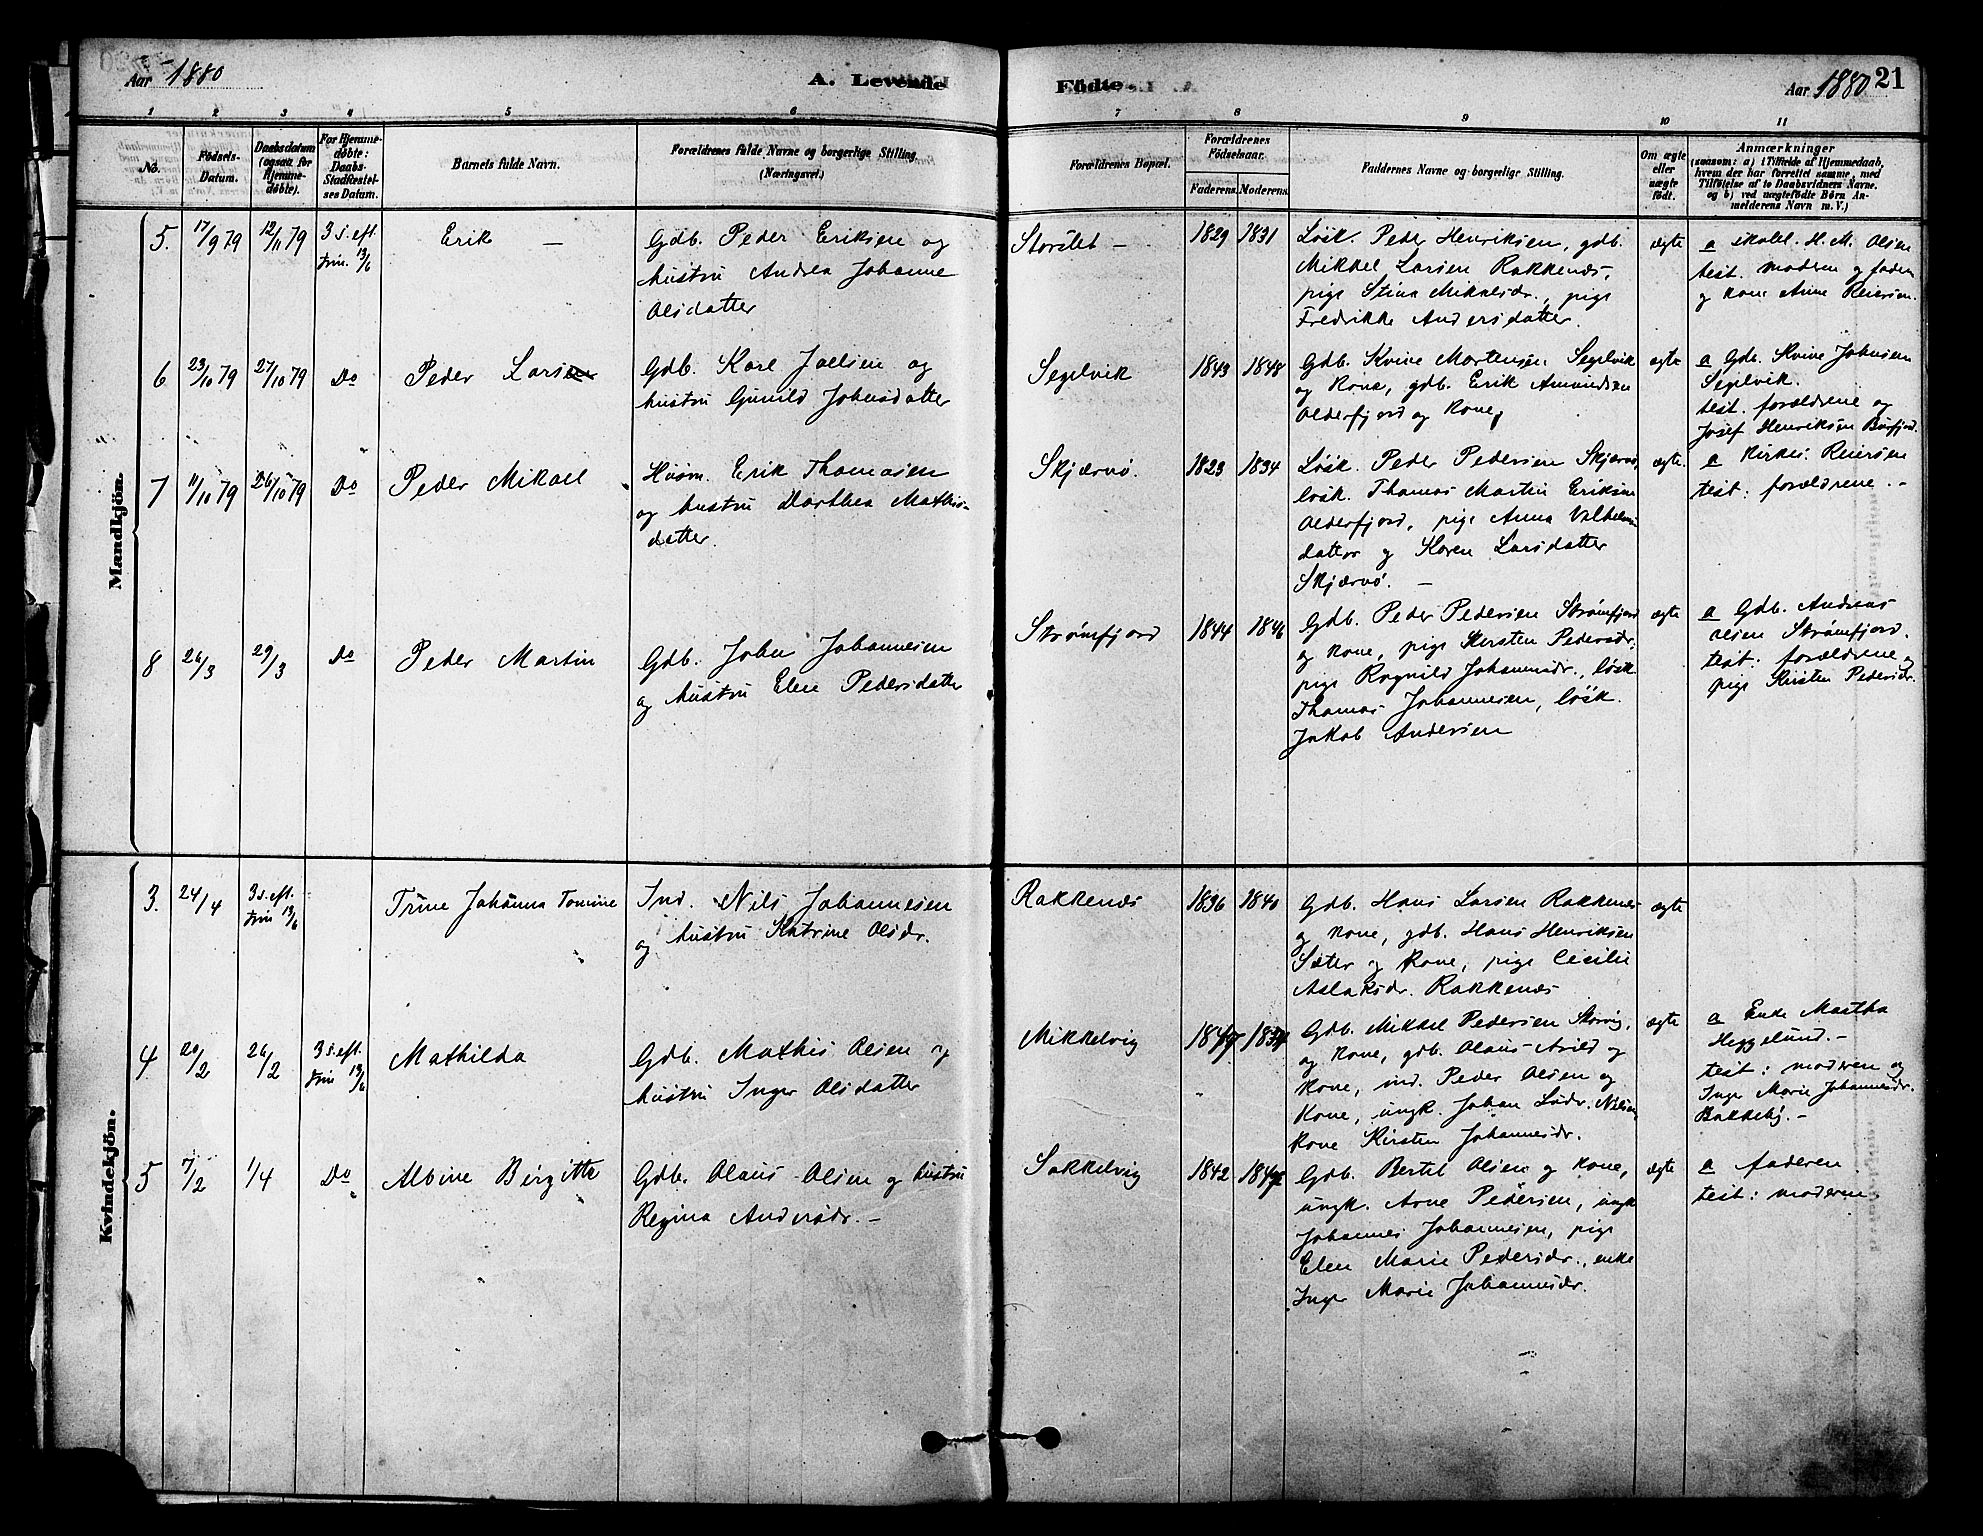 Aar 1880
A. Levende
Fødte.
Aar 1880
21
1 2 3 4 5 6 7 8 9 10 11
No.
Fødsels-
Datum.
Daabsdatum
(ogsaa for
Hjemme-
døbte).
For Hjemme-
døbte:
Daabs-
Stadfæstel-
ses Datum.
Barnets fulde Navn.
Forældrenes fulde Navne og borgerlige Stilling.
(Næringsvei.)
Forældrenes Bopæl.
Forældrenes
Fødselsaar.
Faderens. Moderens.
Faddernes Navne og borgerlige Stilling.
Om ægte
eller
uægte
født.
Anmærkninger
(saasom: a) i Tilfælde af Hjemmedaab,
hvem der har forrettet samme, med
Tilføielse af to Daabsvidners Navne.
og b) ved uægtefødte Børn An-
melderens Navn m. V.)
Mandkjön.
5. 17/9 79 12/11 79
3 s. eft.
trin. 13/6
Erik —
Gdb. Peder Eriksen og
hustru Andrea Johanne
Olsdatter
Storslet —
1829 1831
Løsk. Peder Henriksen, gdb.
Mikkel Larsen Rakkenæs,
pige Stina Mikalsdr., pige
Fredrikke Andersdatter.
ægte
a skolel. H. M. Olsen
test. moderen og faderen
og kone Anne Reiersen.
6 23/10 79 27/10 79 Do
Peder Larsen
Gdb. Karl Joelsen og
hustru Gunild Johnsdatter
Segelvik
1843 1848
Gdb. Kvine Mortensen Segelvik
og kone, gdb. Erik Amundsen
Olderfjord og kone,
ægte
a Gdb. Kvine Johnsen
Segelvik.
test. forældrene og
Josef Henriksen Burfjord.
7 11/10 79 26/10 79 Do
Peder Mikael
Husm. Erik Thomasen
og hustru Dorthea Mathis-
datter.
Skjærvø.
1823 1834
Løsk. Peder Pedersen Skjærvø,
løsk. Thomas Martin Eriksen
Olderfjord, pige Anna Vilhelms
datter og Karen Larsdatter
Skjærvø. —
ægte.
a Kirkes. Reiersen
test: forældrene. —
8 26/3 29/3 Do
Peder Martin
Gdb. John Johannesen
og hustru Elen Pedersdatter
Strømfjord
1844 1846
Gdb. Peder Pedersen Strømfjord
og kone, pige Kirsten Pedersdr.
pige Ragnild Johannesdr., løsk.
Thomas Johannesen, løsk.
Jakob Andersen
ægte
a Gdb. Andreas
Olsen Strømfjord.
test: forældrene og
pige Kirsten Pedersdr.
Kvindekjön.
3. 24/4
3 s. eft.
trin 13/6
Trine Johanna Tomine
Ind. Nils Johannesen
og hustru Katrine Olsdr.
Rakkenæs
1836 1840
Gdb. Hans Larsen Rakkenæs
og kone, gdb. Hans Henriksen
Sæter og kone, pige Cecilie
Aslaksdr. Rakkenæs
ægte
4 20/2 26/2
3 s. eft.
trin 13/6
Mathilda
Gdb. Mathis Olsen og
hustru Inger Olsdatter
Mikkelvig
Gdb. Mikkel Pedersen Storvig,
og kone, gdb. Olaus Arild og
kone, ind. Peder Olsen og
kone, ungk. Johan Ludv. Nilsen
kone Kirsten Johannesdr.
ægte
a Enke Martha
Heggelund. —
test: moderen og
Inger Marie Johannesdr.
Bakkeby. —
5 7/2 1/4 Do
Albine Birgitte
Gdb. Olaus Olsen og hustru
Regina Andersdr. —
Sakkelvig
1842
Gdb. Bertel Olsen og kone,
ungk. Arne Pedersen, ungk
Johannes Johannesen, pige
Elen Marie Pedersdr., enke
Inger Marie Johannesdr.
ægte
a faderen.
test: moderen